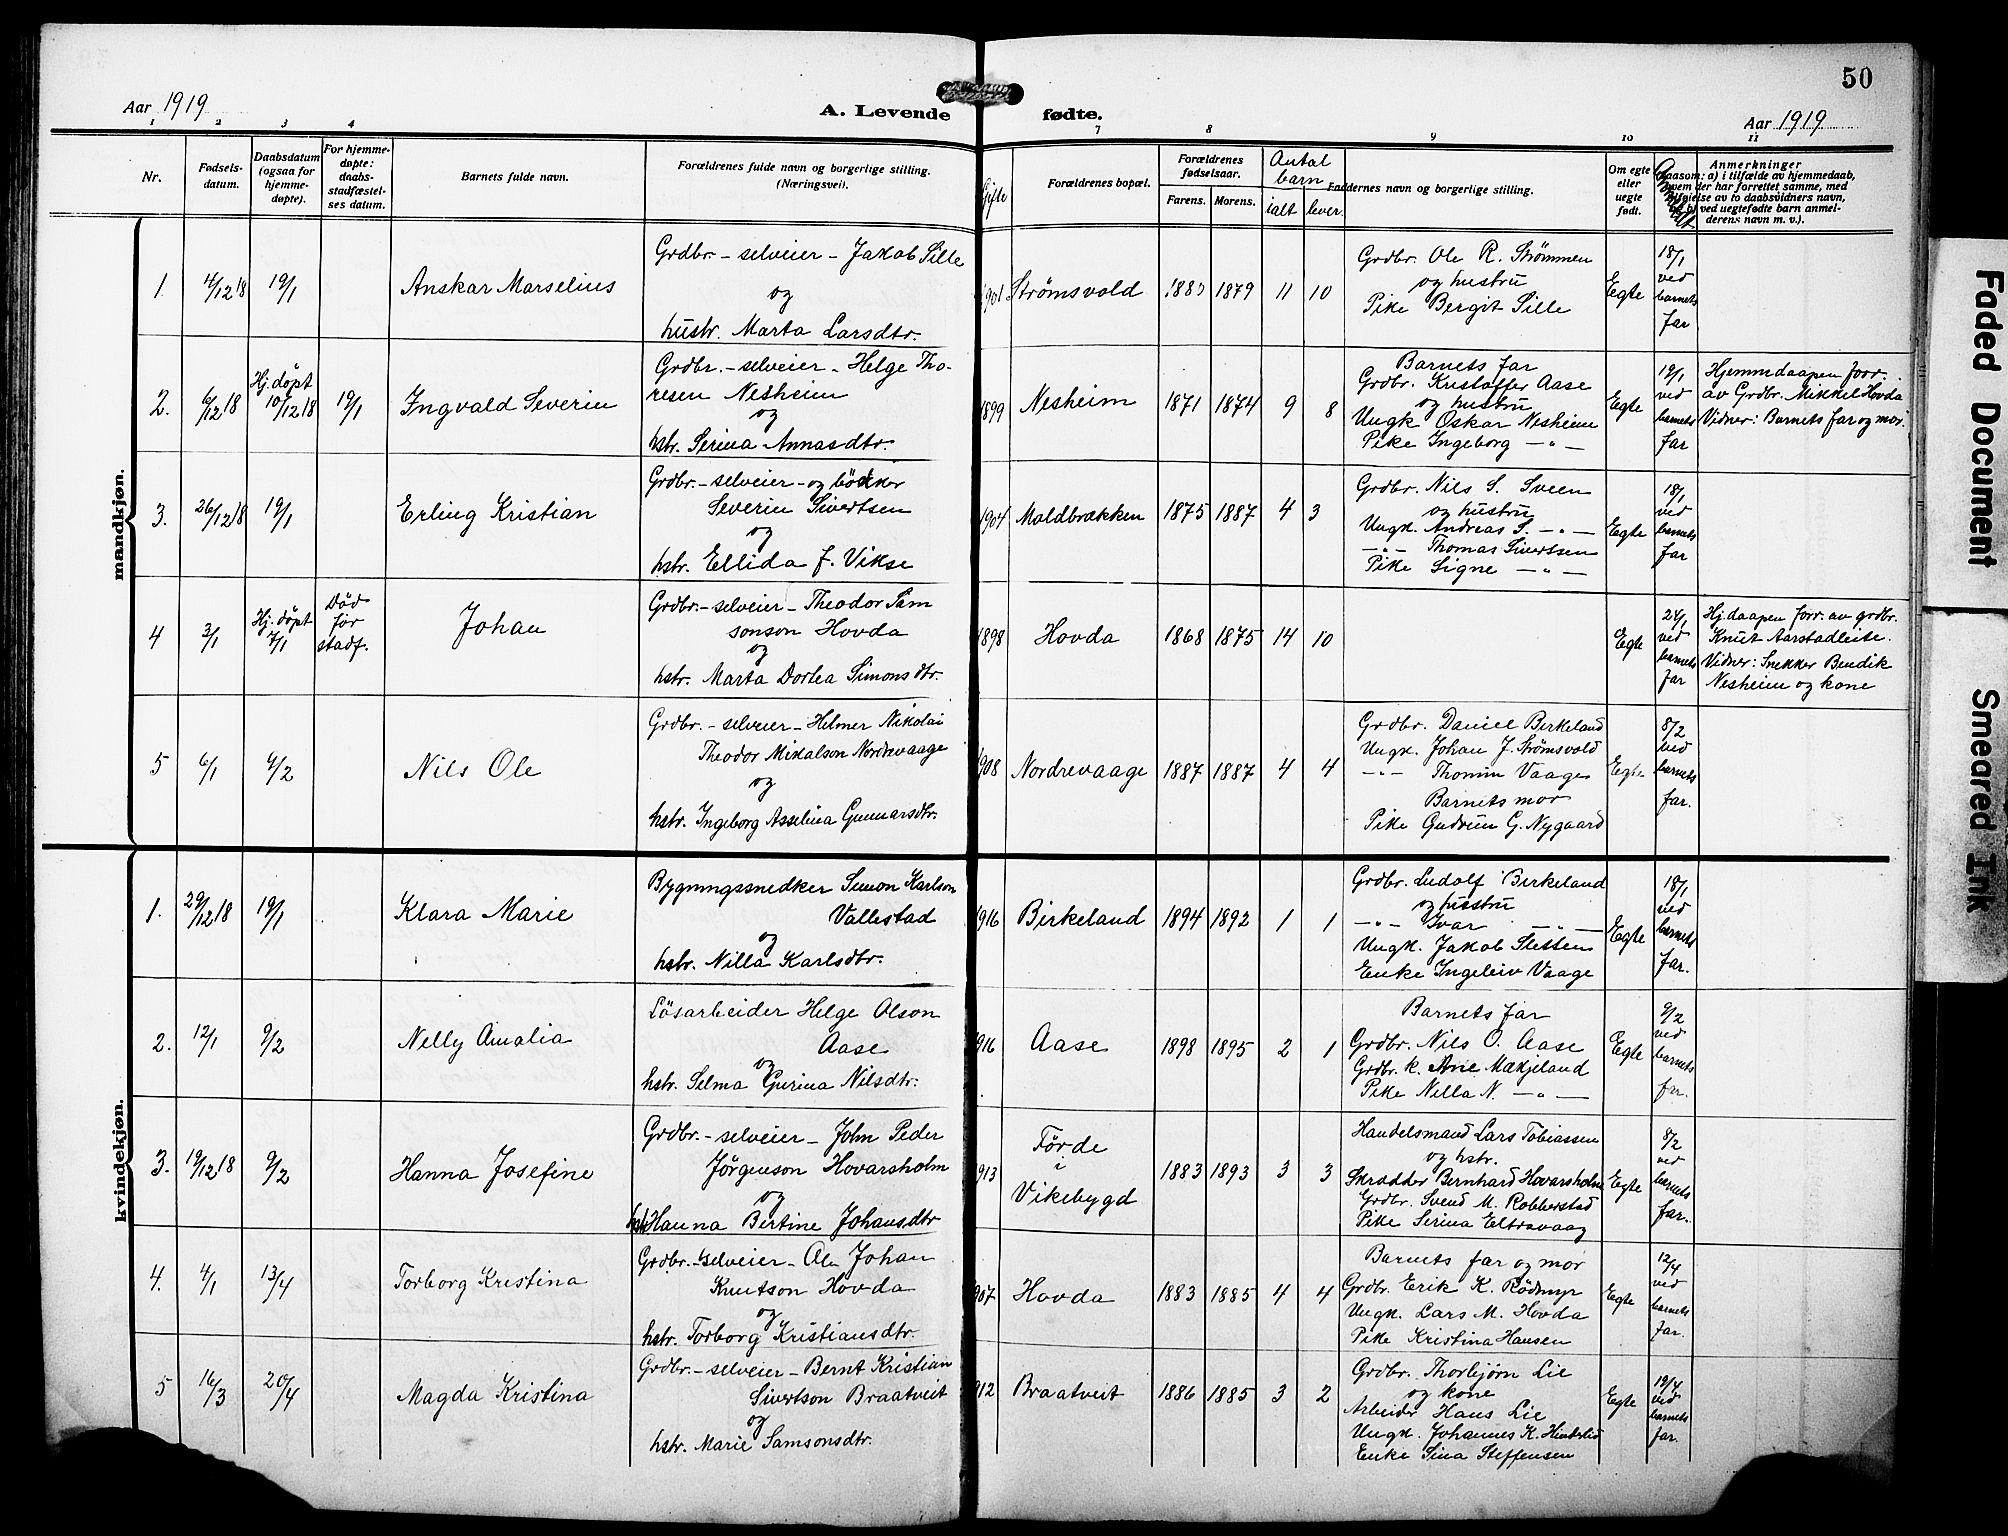 50
Aar 1919
A. Levende fødte.
Aar 1919
1 2 3 4 7 8 9 10 11
Nr.
Fødsels-
datum.
Daabsdatum
(ogsaa for
hjemme-
døpte).
For hjemme-
døpte:
daabs-
stadfæstel-
ses datum.
Barnets fulde navn.
Forældrenes fulde navn og borgerlige stilling.
(Næringsvei).
Gifte
Forældrenes bopæl.
Forældrenes
fødselsaar.
Farens. Morens.
Antal
barn
ialt lever
Faddernes navn og borgerlige stilling.
Om egte
eller
uegte
født.
Anmeldt
Anmerkninger
(saasom: a) i tilfælde av hjemmedaab,
hvem der har forrettet samme, med
tilføielse av to daabsvidners navn,
og b) ved uegtefødte barn anmel-
derens navn m. v.).
mandkjøn.
1. 4/12 18 19/1 Anskar Marselius
Grdbr. - selveier - Jakob Sille
og
hustr. Marta Larsdtr.
1901 Strømsvold 1883 1879 11 10
Grdbr. Ole R. Strømmen
og hustru
Pike Bergit Sille
Egte
18/1
ved
barnets
far
2. 6/12 18
Hj. døpt
10/12 18
19/1 Ingvald Severin
Grdbr. - selveier - Helge Tho-
resen Nesheim
og
hstr. Serina Annasdtr.
1899 Nesheim 1871 1874 9 8
Barnets far
Grdbr. Kristoffer Aase
og hustru
Ungk Oskar Nesheim
Pike Ingeborg - " -
Egte
19/1
ved
barnets
far
Hjemmedaapen forr.
av Grdbr. Mikkel Hovda
Vidner: Barnets far og mor.
3. 26/12 18 19/1 Erling Kristian
Grdbr. - selveier - og bøkker
Severin Sivertsen
og
hstr. Ellida J. Vikse
1904 Moldbrækken 1875 1887 4 3
Grdbr. Nils S. Sveen
og hustru
Ungk. Andreas S. - " -
- " - Thomas Sivertsen
Pike Signe - " -
Egte
18/1
ved
barnets
far
4 3/1
Hj. døpt
7/1
Död
för
stadf.
Johan
Grdbr. - selveier - Theodor Sam
sonson Hovda
og
hstr. Marta Dortea Simonsdtr.
1898 Hovda 1868 1875 14 10
Egte
24/1
ved
barnets
far
Hj. daapen forr. av grdbr.
Knut Aarstadleite.
Vidner: Snekker Bendik
Nesheim og kone
5 6/1 9/2 Nils Ole
Grdbr. - selveier - Helmer Nikolai
Theodor Mikalson Nordrevaage
og
hstr. Ingeborg Asselina Gunnarsdtr.
1908 Nordrevaage 1887 1887 4 4
Grdbr. Daniel Birkeland
Ungk. Johan J. Strømsvold
- " - Thomin Vaage
Barnets mor
Pike Gudrun G. Nygaard
Egte
8/2
ved
barnets
far.
kvindekjøn.
1. 29/12 18 19/1 Klara Marie
Bygningssnedker Simon Karlson
Vallestad
og
hstr. Nilla Karlsdtr.
1916 Birkeland 1894 1892 1 1
Grdbr. Ludolf Birkeland
og hustru
- " - Ivar - " -
Ungk. Jakob Slettem
Enke Ingeleiv Vaage
Egte
18/1
ved
barnets
far.
2. 12/1 9/2 Nelly Amalia
Løsarbeider Helge Olson
Aase
og
hstr. Selma Gurina Nilsdtr.
1916 Aase 1898 1895 2 1
Barnets far
Grdbr. Nils O. Aase
Grdbr. k. Ane Mækjeland
Pike Nilla N. - " -
Egte
9/2
ved
barnets
far.
3. 19/12 18 9/2 Hanna Josefine
Grdbr. - selveier - John Peder
Jörgenson Hovarsholm
og
hstr Hanna Bertine Johansdtr
1913
Förde
i
Vikebygd
1883 1893 3 3
Handelsmand Lars Tobiassen
og hstr.
Skrædder Bernhard Hovarsholm
Grdbr. Svend M. Robberstad
Pike Serina Eltravaag
Egte
8/2
ved
barnets
far.
4. 4/1 13/4 Torborg Kristina
Grdbr. - selveier - Ole Johan
Knutson Hovda
og
hstr. Torborg Kristiansdtr.
1907 Hovda 1883 1885 4 4
Barnets far og mor
Grdbr. Erik K. Rödmyr
Ungk. Lars M. Hovda
Pike Kristina Hansen
Egte
12/4
ved
barnets
far.
5 16/3 20/4 Magda Kristina
Grdbr. - selveier - Bernt Kristian
Sivertson Braatveit
og
hstr. Marie Samsonsdtr.
1912 Braatveit 1886 1885 3 2
Grdbr. Thorbjørn Lie
og kone
Arbeider Hans Lie
Ungk. Johannes K. Hinderlid
Enke Sina Steffensen
Egte
19/4
ved
barnets
far.
Faded Document
Smeared Ink